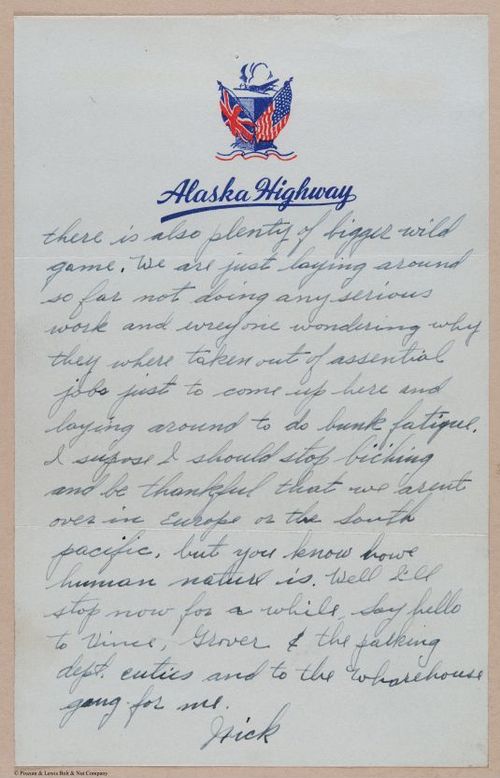 Alaska Highway
there is also plenty of bigger wild
game. We are just laying around
so far not doing any serious
work and evreyone wondering why
they where taken out of assential
jobs just to come up here and
laying around to do bunk fatigue.
I supose I should stop biching
and be thankful that we arent
over in Europe or the South
pacific, but you know howe
human nature is. Well I'll
stop now for a while, say hello
to Vince, Grover & the packing
dept. cuties and to the wharehouse
gang for me.
Hick
© Pheoll & Lewis Bolt & Nut Company